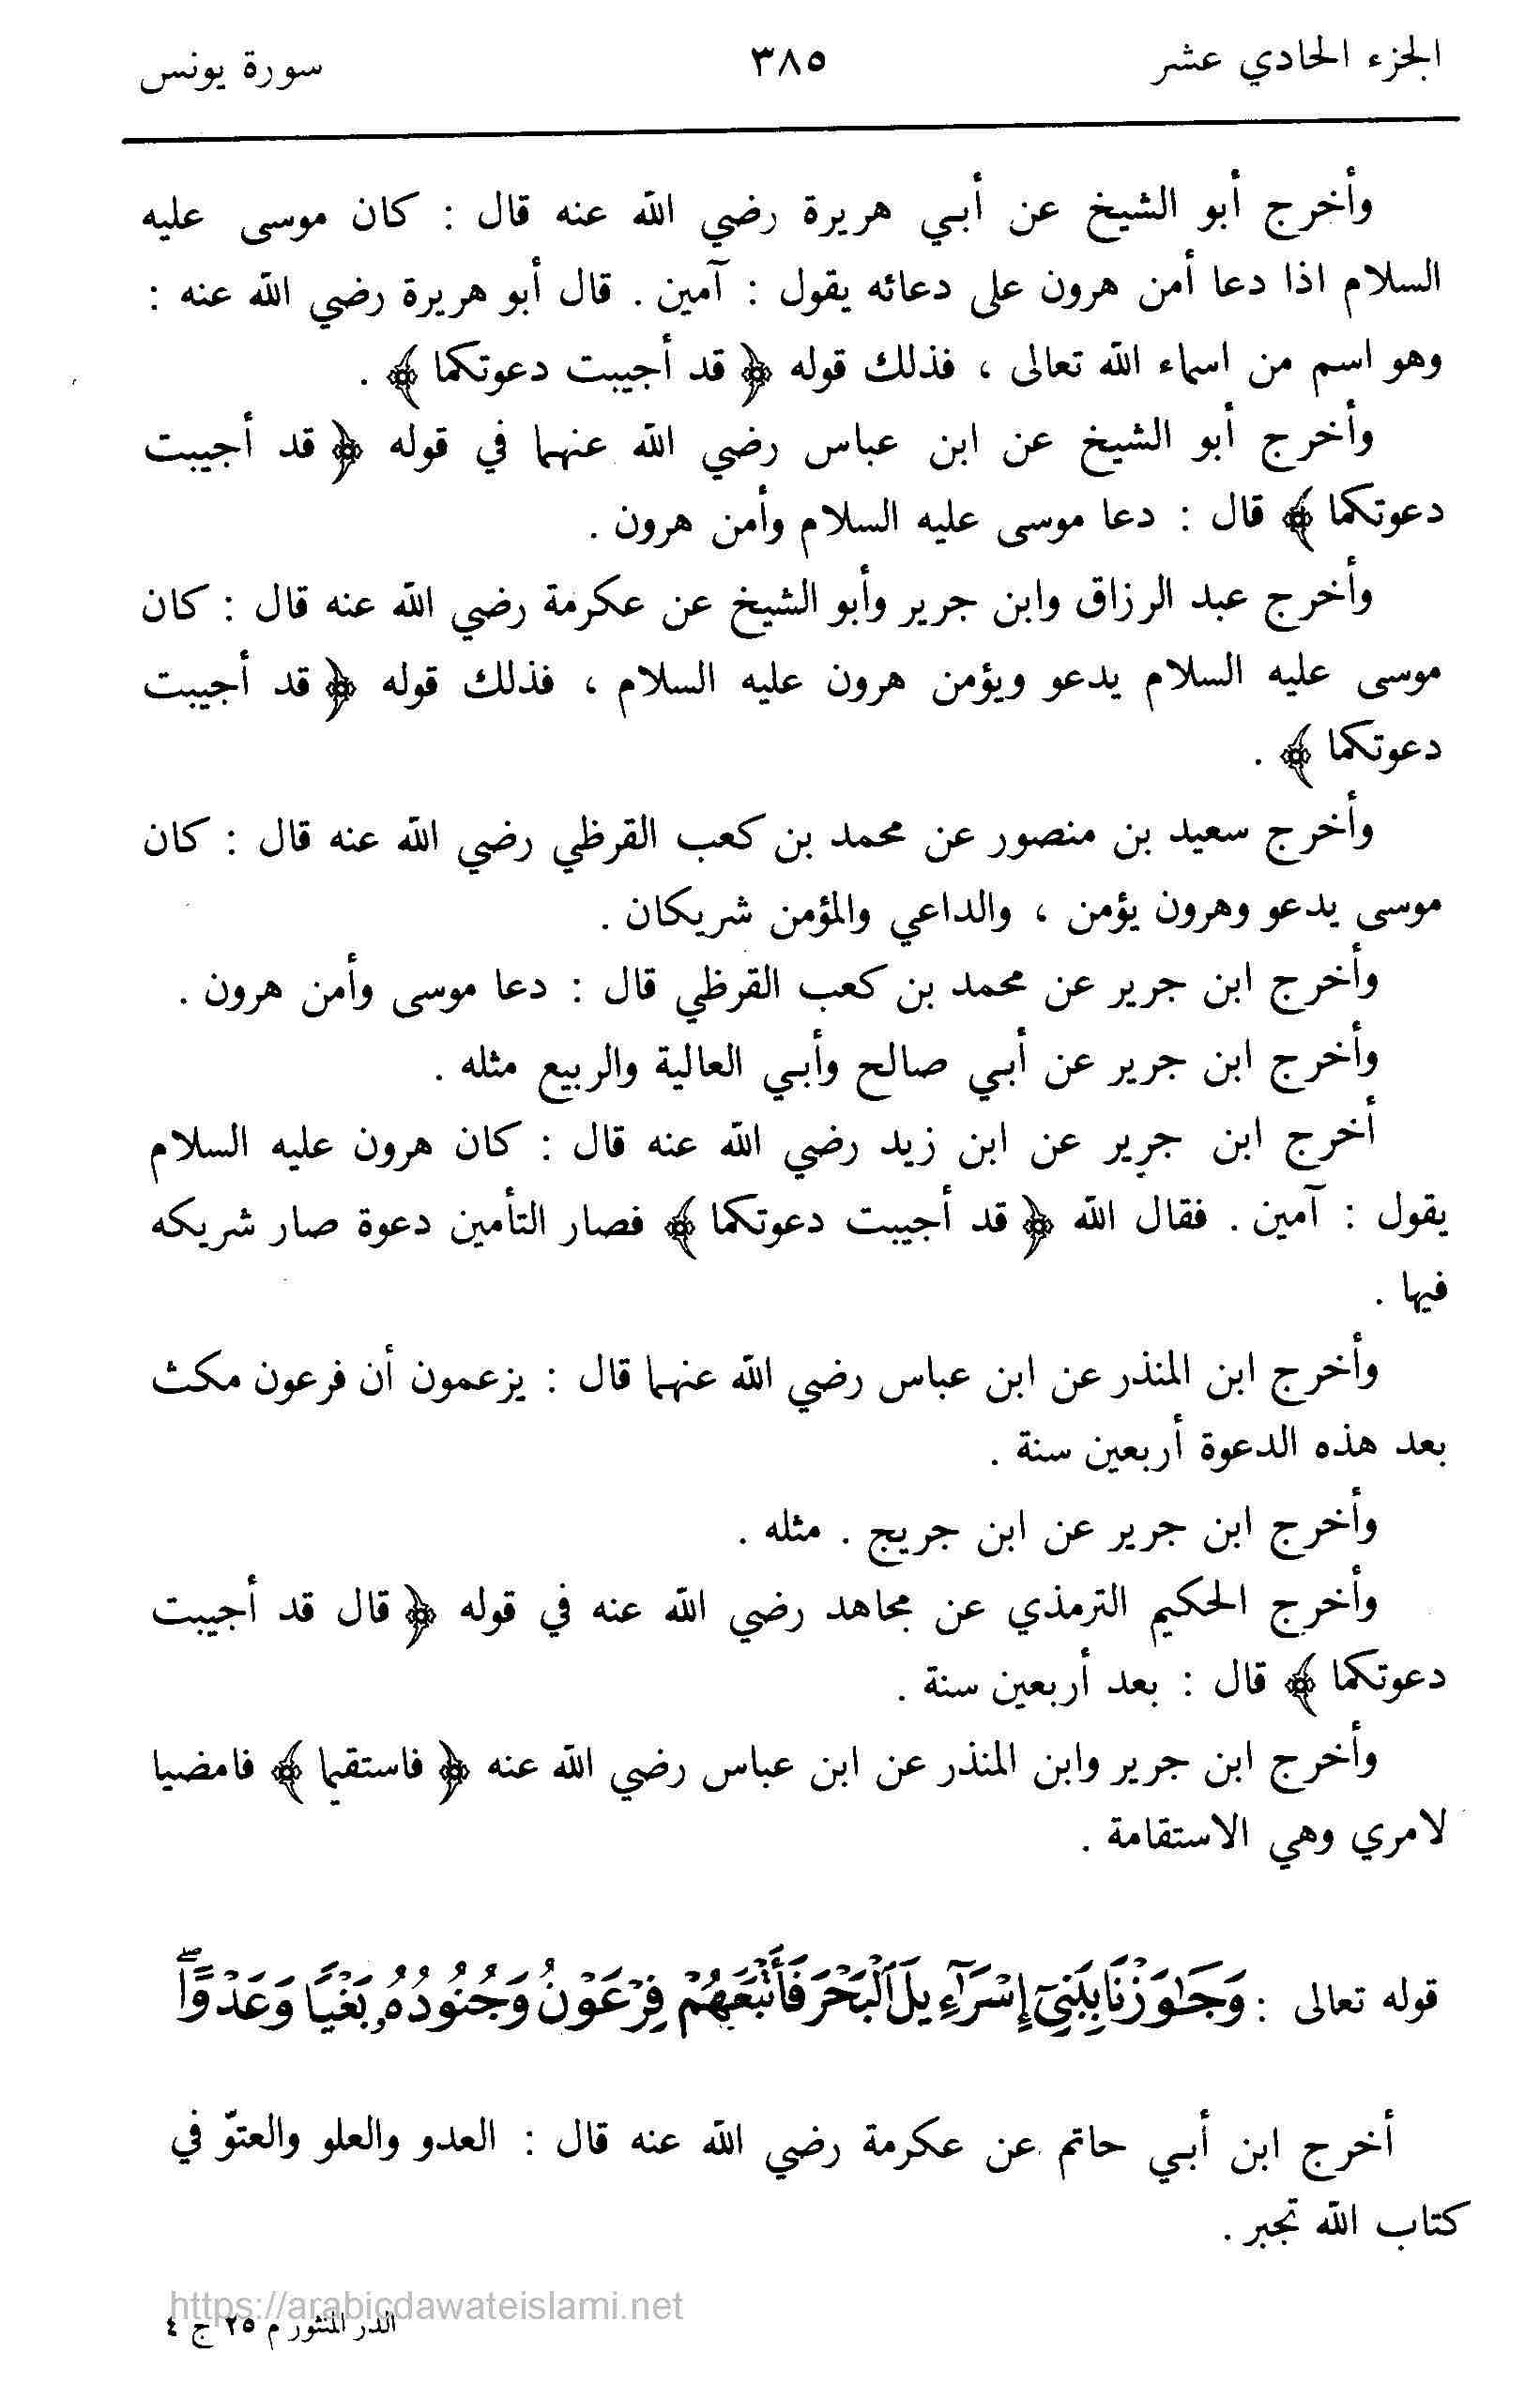 الجزء الحادي عشر
٣٨٥
سورة يونس
وأخرج أبو الشيخ عن أبي هريرة رضي الله عنه قال : كان موسى عليه
السلام اذا دعا أمن هرون على دعائه يقول : آمين . قال أبو هريرة رضي الله عنه :
وهو اسم من اسماء الله تعالى ، فذلك قوله ﴿ قد أجيبت دعوتكما ﴾ .
وأخرج أبو الشيخ عن ابن عباس رضي الله عنهما في قوله ﴿ قد أجيبت
دعوتكما ﴾ قال : دعا موسى عليه السلام وأمن هرون .
وأخرج عبد الرزاق وابن جرير وأبو الشيخ عن عكرمة رضي الله عنه قال : كان
موسى عليه السلام يدعو ويؤمن هرون عليه السلام ، فذلك قوله ﴿ قد أجيبت
دعوتكما ﴾ .
وأخرج سعيد بن منصور عن محمد بن كعب القرظي رضي الله عنه قال : كان
موسى يدعو وهرون يؤمن ، والداعي والمؤمن شريكان .
وأخرج ابن جرير عن محمد بن كعب القرظي قال : دعا موسى وأمن هرون .
وأخرج ابن جرير عن أبي صالح وأبي العالية والربيع مثله .
أخرج ابن جرير عن ابن زيد رضي الله عنه قال : كان هرون عليه السلام
يقول : آمين . فقال الله ﴿ قد أجيبت دعوتكما ﴾ فصار التأمين دعوة صار شريكه
فيها .
وأخرج ابن المنذر عن ابن عباس رضي الله عنهما قال : يزعمون أن فرعون مكث
بعد هذه الدعوة أربعين سنة .
وأخرج ابن جرير عن ابن جريج . مثله .
وأخرج الحكيم الترمذي عن مجاهد رضي الله عنه في قوله ﴿ قال قد أجيبت
دعوتكما ﴾ قال : بعد أربعين سنة .
وأخرج ابن جرير وابن المنذر عن ابن عباس رضي الله عنه ﴿ فاستقيما ﴾ فامضيا
لامري وهي الاستقامة .
قوله تعالى : وَجَٰوَزْنَا بِبَنِيٓ إِسْرَٰٓءِيلَ ٱلْبَحْرَ فَأَتْبَعَهُمْ فِرْعَوْنُ وَجُنُودُهُۥ بَغْيًا وَعَدْوًاۖ
أخرج ابن أبي حاتم عن عكرمة رضي الله عنه قال : العدو والعلو والعتوّ في
كتاب الله تجبر .
https://arabicdawateislami.net
الدر المنثور م ٢٥ ج ٤